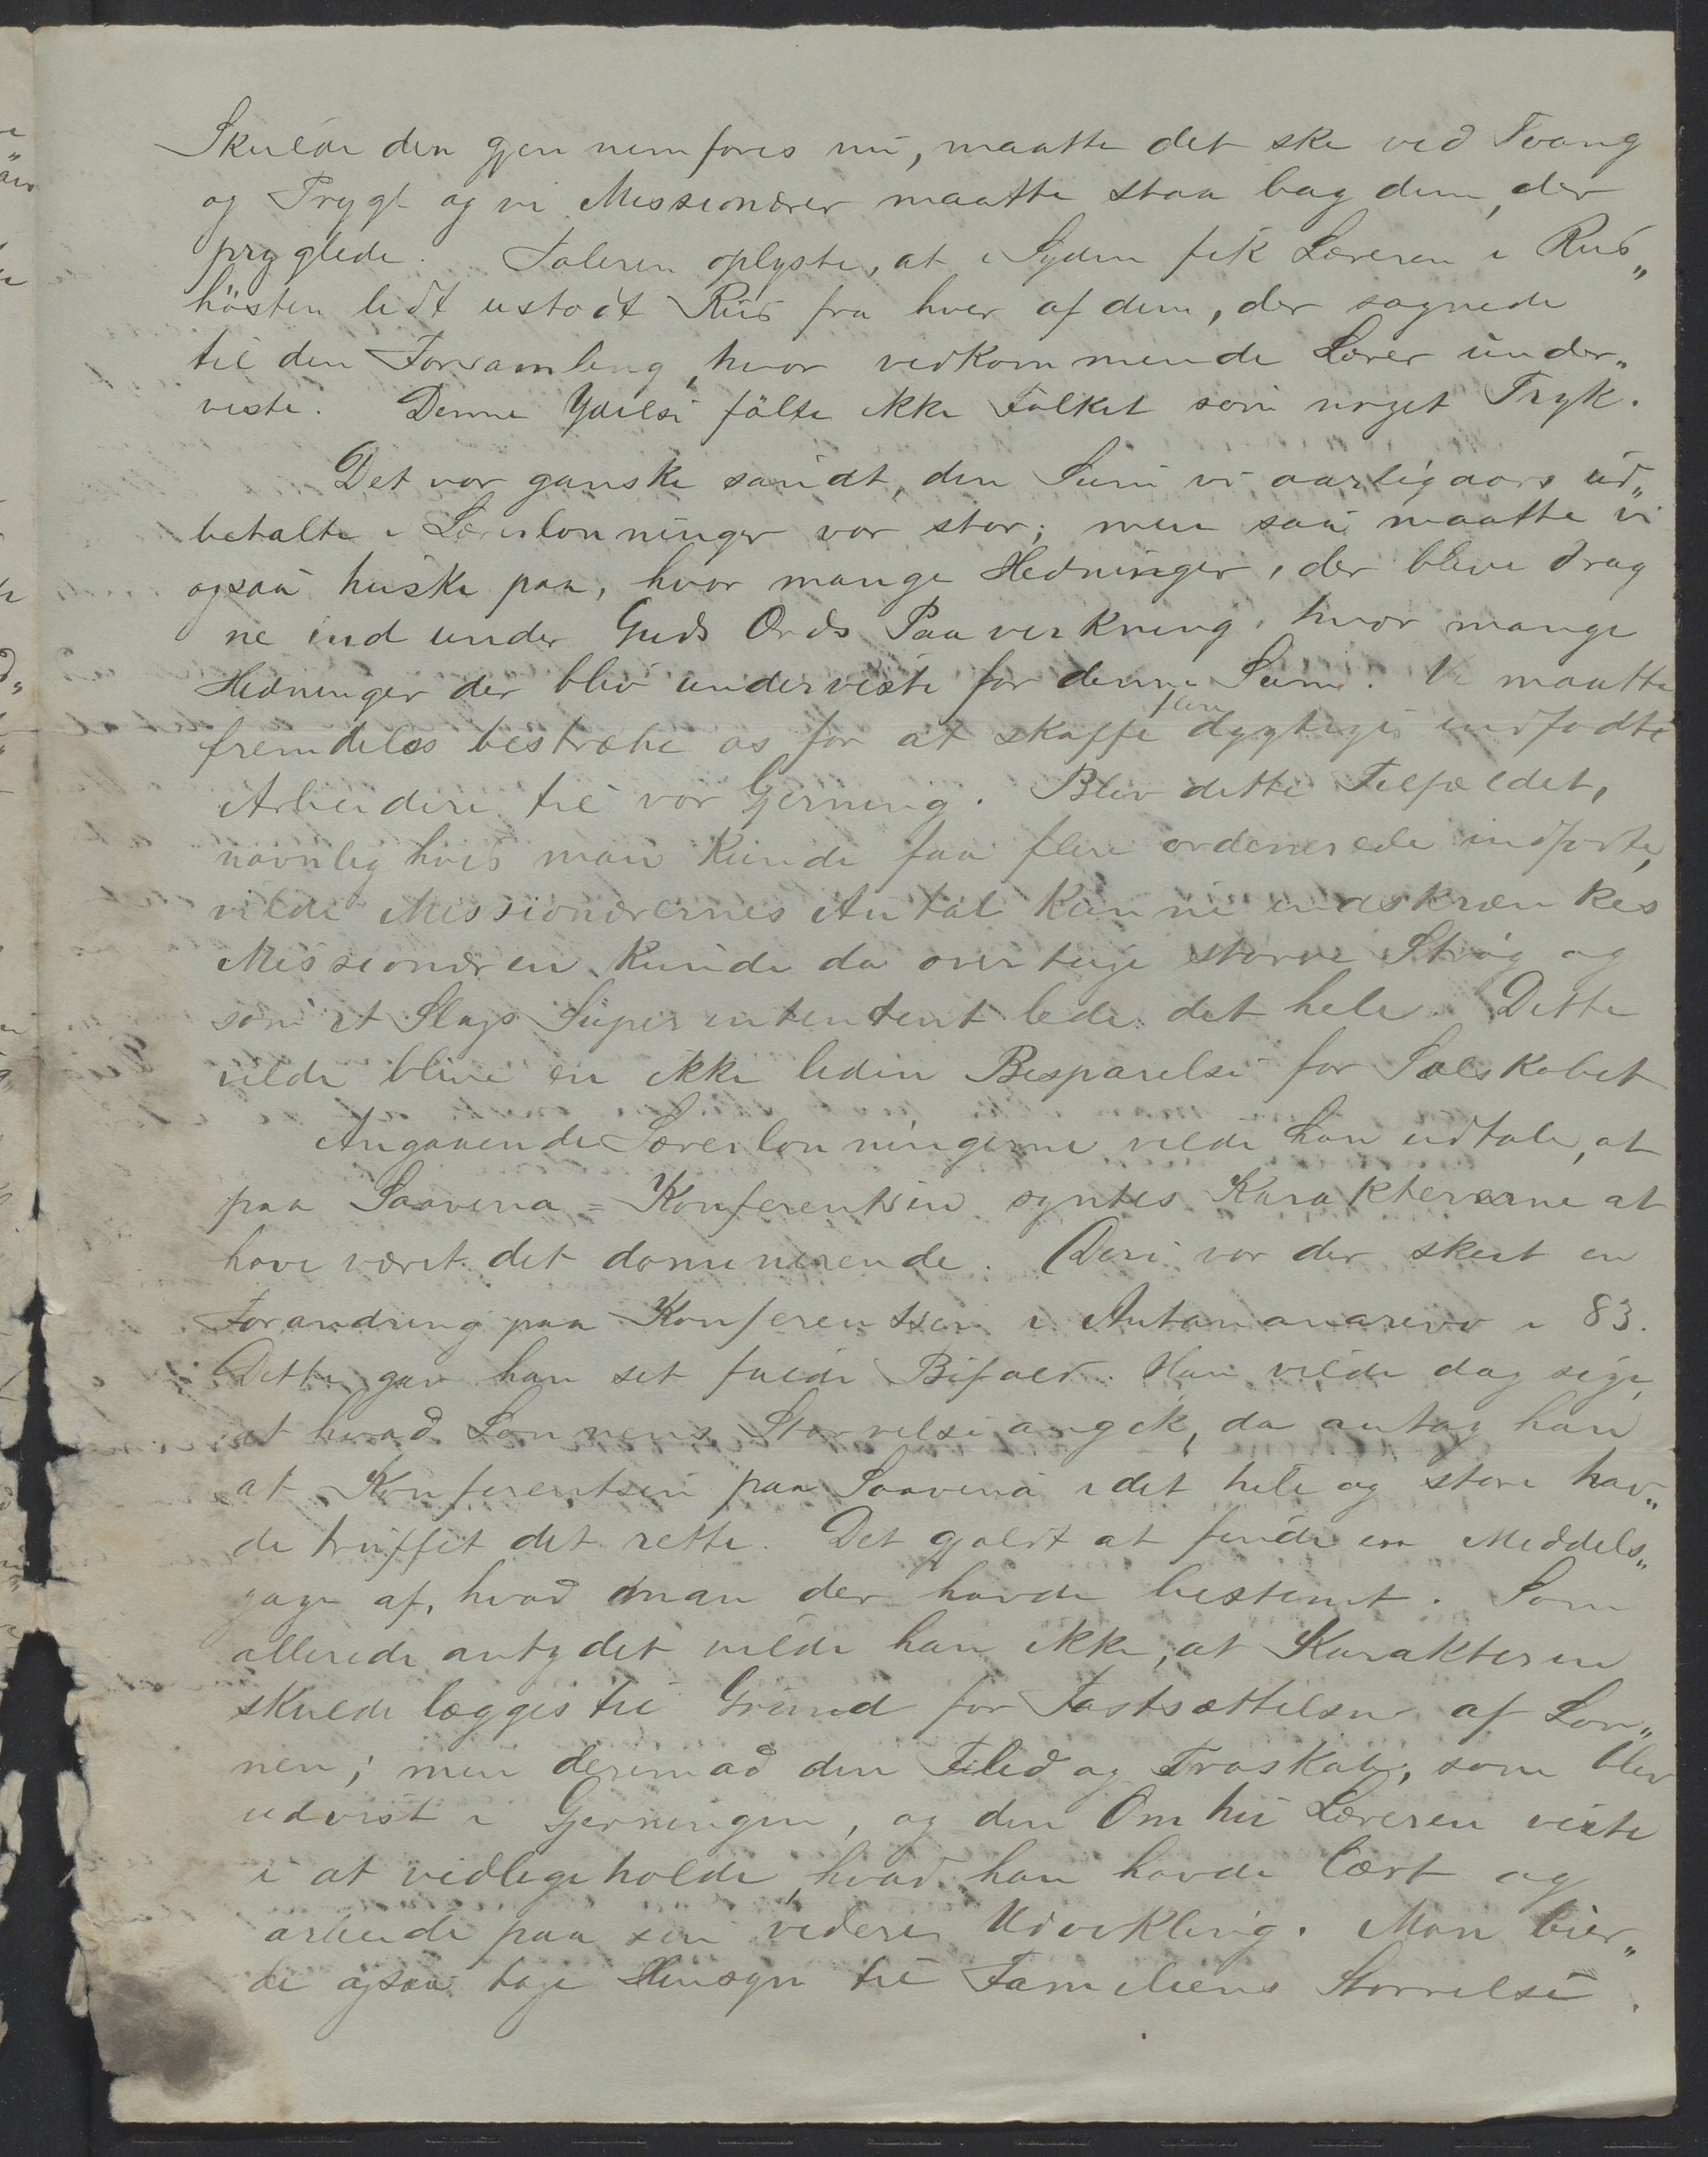 Skulde den gjennemføres nu, maatte det ske ved Tvang
og Prygl og vi Missionærer maatte staa bag dem, der
pryglede. Taleren oplyste, at i Syden fik Læreren i Ris„
hösten lidt ustødt Ris fra hver af dem, der sognede
til den Forsamling, hvor vedkommende Lærer under„
viste. Denne Ydelse følte ikke Folket som noget Tryk.
Det var ganske sandt, den Sum vi aarligaars ud„
betalte i Lærerlønninger var stor; men saa maatte vi
ogsaa huske paa, hvor mange Hedninger, der bleve drag
ne ind under Guds Ords Paavirkning, hvor mange
Hedninger der blev underviste for denne Sum. Vi maatte
fremdeles bestræbe os for at skaffe flere dygtige indfødte
Arbeidere til vor Gjerning. Blev dette Tilfældet,
navnlig hvis man kunde faa flere ordinerede indfødte,
vilde Missionærernes Antal kunne indskrænkes
Missionæren kunde da overtage større Strøg og
som et Slags Superintendent lede det hele. Dette
vilde blive en ikke liden Besparelse for Selskabet
Angaaende Lærerlønningerne vilde han udtale, at
paa Soavina-Konferentsen syntes Karaktererne at
have været det dominerende. Deri var der skeet en
Forandring paa Konferentsen i Antananarivo i 83.
Dette gav han sit fulde Bifald. Han vilde dog sige,
at hvad Lønnens Størrelse angik, da antog han
at Konferentsen paa Soavina i det hele og store hav„
de truffet det rette. Det gjaldt at finde en Middels„
gage af, hvad man der havde bestemt. Som
allerede antydet vilde han ikke, at Karakteren
skulde lægges til Grund for Fastsættelsen af Løn„
nen; men derimod den Flid og Troskab, som blev
udvist i Gjerningen, og den Omhu Læreren viste
i at vedligeholde, hvad han havde lært og
arbeide paa sin videre Udvikling. Man bur„
de ogsaa tage Hensyn til Familiens Størrelse.